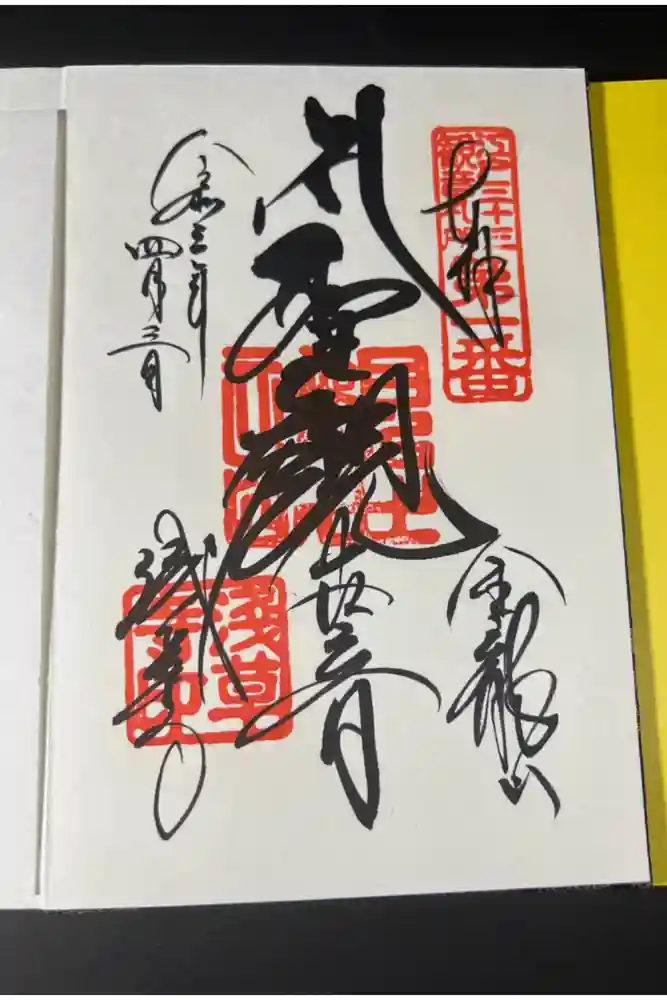 奉拝
江戸三十三
観音札所
第一番
金龍山
聖観世音
浅草
寺印
令和三年
四月
浅草寺